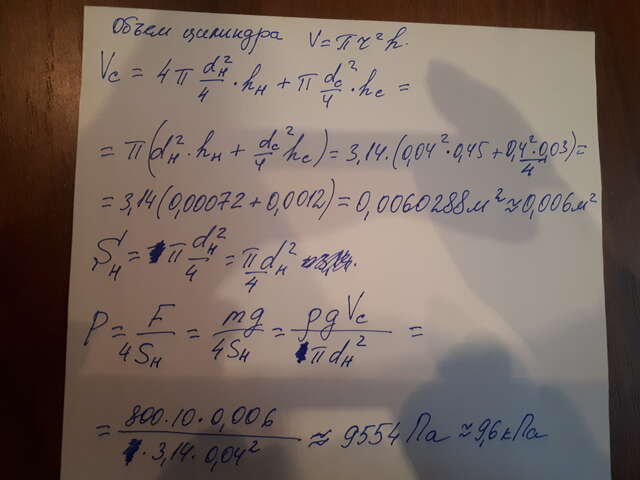 Объем цилиндра V = π r² h.
V_c = 4 π d_н²/4 · h_н + π d_c²/4 · h_c =
= π (d_н² · h_н + d_c²/4 h_c) = 3,14 · (0,04² · 0,45 + 0,4² · 0,03/4) =
= 3,14 (0,00072 + 0,0012) = 0,0060288 м³ ≈ 0,006 м³
S_н = π d_н²/4 = π d_н²/4
P = F/4S_н = mg/4S_н = ρgV_c/π d_н² =
= 800 · 10 · 0,006/3,14 · 0,04² ≈ 9554 Па ≈ 9,6 кПа